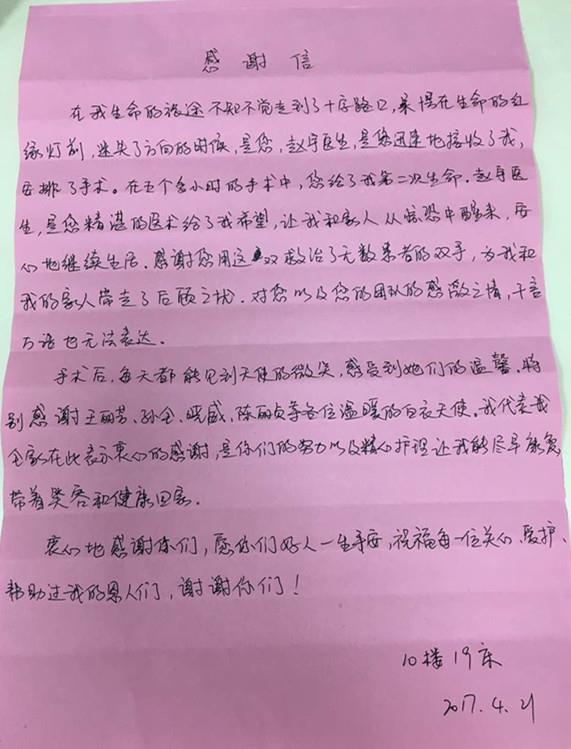 感谢信
在我生命的旅途不知不觉走到了十字路口,呆愣在生命的红
绿灯前,迷失了方向的时候,是您,赵宇医生,是您迅速地接收了我,
安排了手术。在五个多小时的手术中,您给了我第二次生命.赵宇医
生,是您精湛的医术给了我希望,让我和家人从惊恐中醒来,安
心地继续生活.感谢您用这双救治了无数患者的双手,为我和
我的家人带走了后顾之忧.对您以及您的团队的感激之情,千言
万语也无法表达.
手术后,每天都能见到天使的微笑,感受到她们的温馨.特
别感谢王丽芳、孙全、晓威、陈丽贞等各位温暖的白衣天使.我代表我
全家在此表示衷心的感谢,是你们的努力以及精心护理让我能尽早康复,
带着笑容和健康回家.
衷心地感谢你们,愿你们好人一生平安,祝福每一位关心、爱护、
帮助过我的恩人们,谢谢你们!
10楼19床
2017.4.21